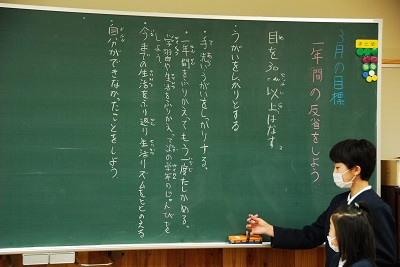 3月の目標
一年間の反省をしよう
目を30cm以上はなす。
・うがいをしっかりとする
・手洗いうがいをしっかりする。
・一年間をふりかえってもう一度たしかめる。
・学習や生活をふりかえって次の学年のじゅんびをしよう
・今までの生活をふり返り生活リズムをととのえる
・自分ができなかったことをしよう